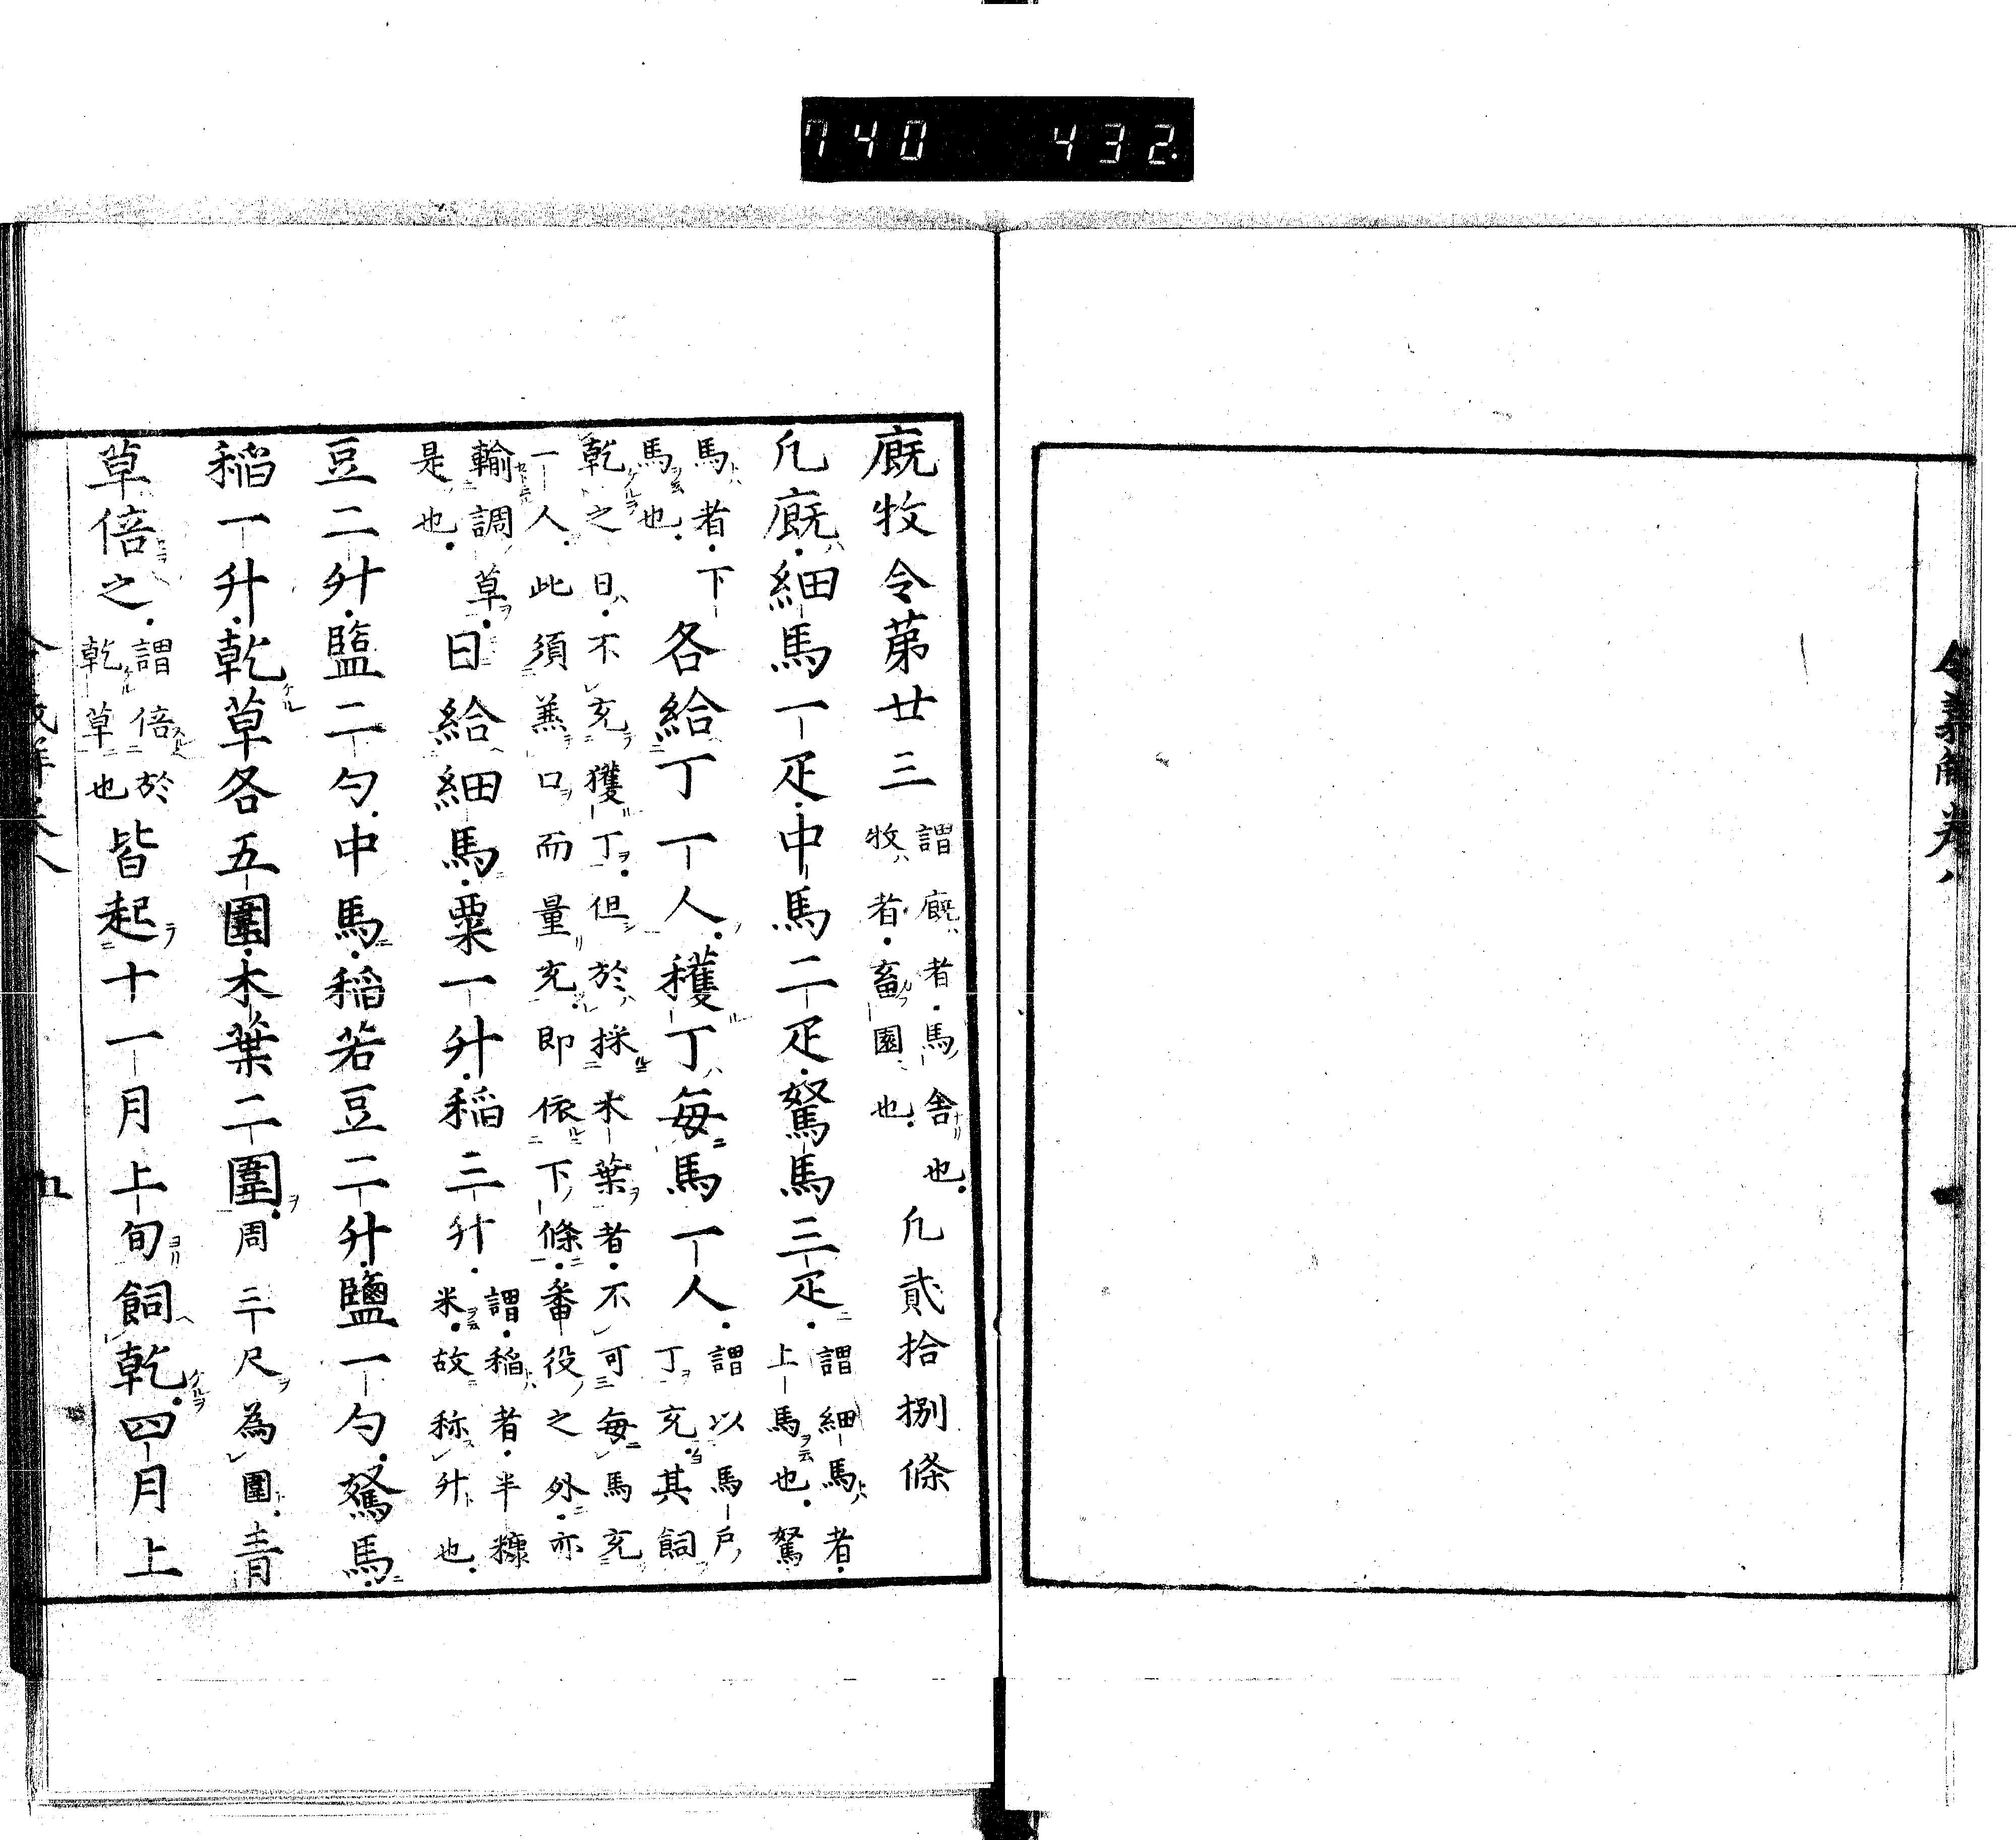 740 432
令義解卷八
厩牧令苐廿三 謂厩者馬舎也 牧者畜園也 凢貳拾捌條
凢厩細馬一疋中馬二疋駑馬三疋 謂細馬者 上馬也駑
馬者下 馬也 各給丁一人穫丁毎馬一人 謂以馬戸 丁充其飼
乾之日不充獲丁但於採木葉者不可毎馬充
一人此須羕口而量充即依下條番役之外亦
輸調草 是也 日給細馬粟一升稲三升 謂稲者半糠 米故称升也
豆二升塩二勺中馬稲若豆二升鹽一勺駑馬
稲一升乾草各五圍木葉二圍 周三尺為圍 青
草倍之 謂倍於 乾草也 皆起十一月上旬飼乾四月上
九